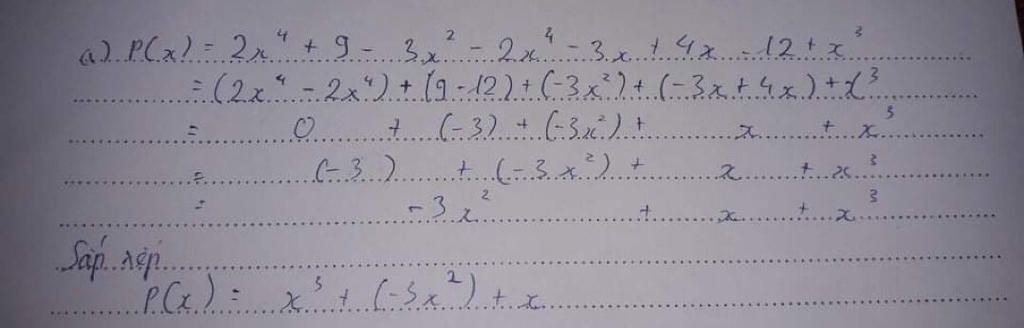 a) P(x) = 2x⁴ + 9 - 3x² - 2x⁴ - 3x + 4x - 12 + x³
= (2x⁴ - 2x⁴) + (9 - 12) + (-3x²) + (-3x + 4x) + x³
= 0 + (-3) + (-3x²) + x + x³
= (-3) + (-3x²) + x + x³
= -3x² + x + x³
Sắp xếp
P(x) = x³ + (-3x²) + x